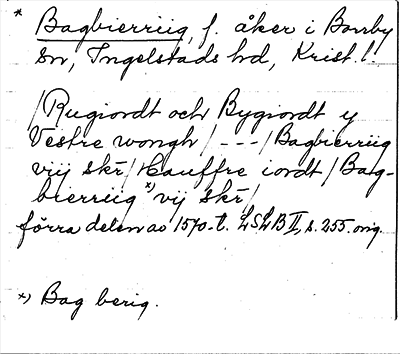 * Bagbierriig, f. åker i Bomby
sn, Ingelstads hd, Krist. l.
/Rugiordt och Bygiordt y
Vestre wongh/ - - - /Bagbierriig
viij skr̄/ Hauffre iordt /Bag-
bierriig x) vij skr̄/
förra delen av 1570-t. LSLB II, s. 255. orig.
x) Bag berig.